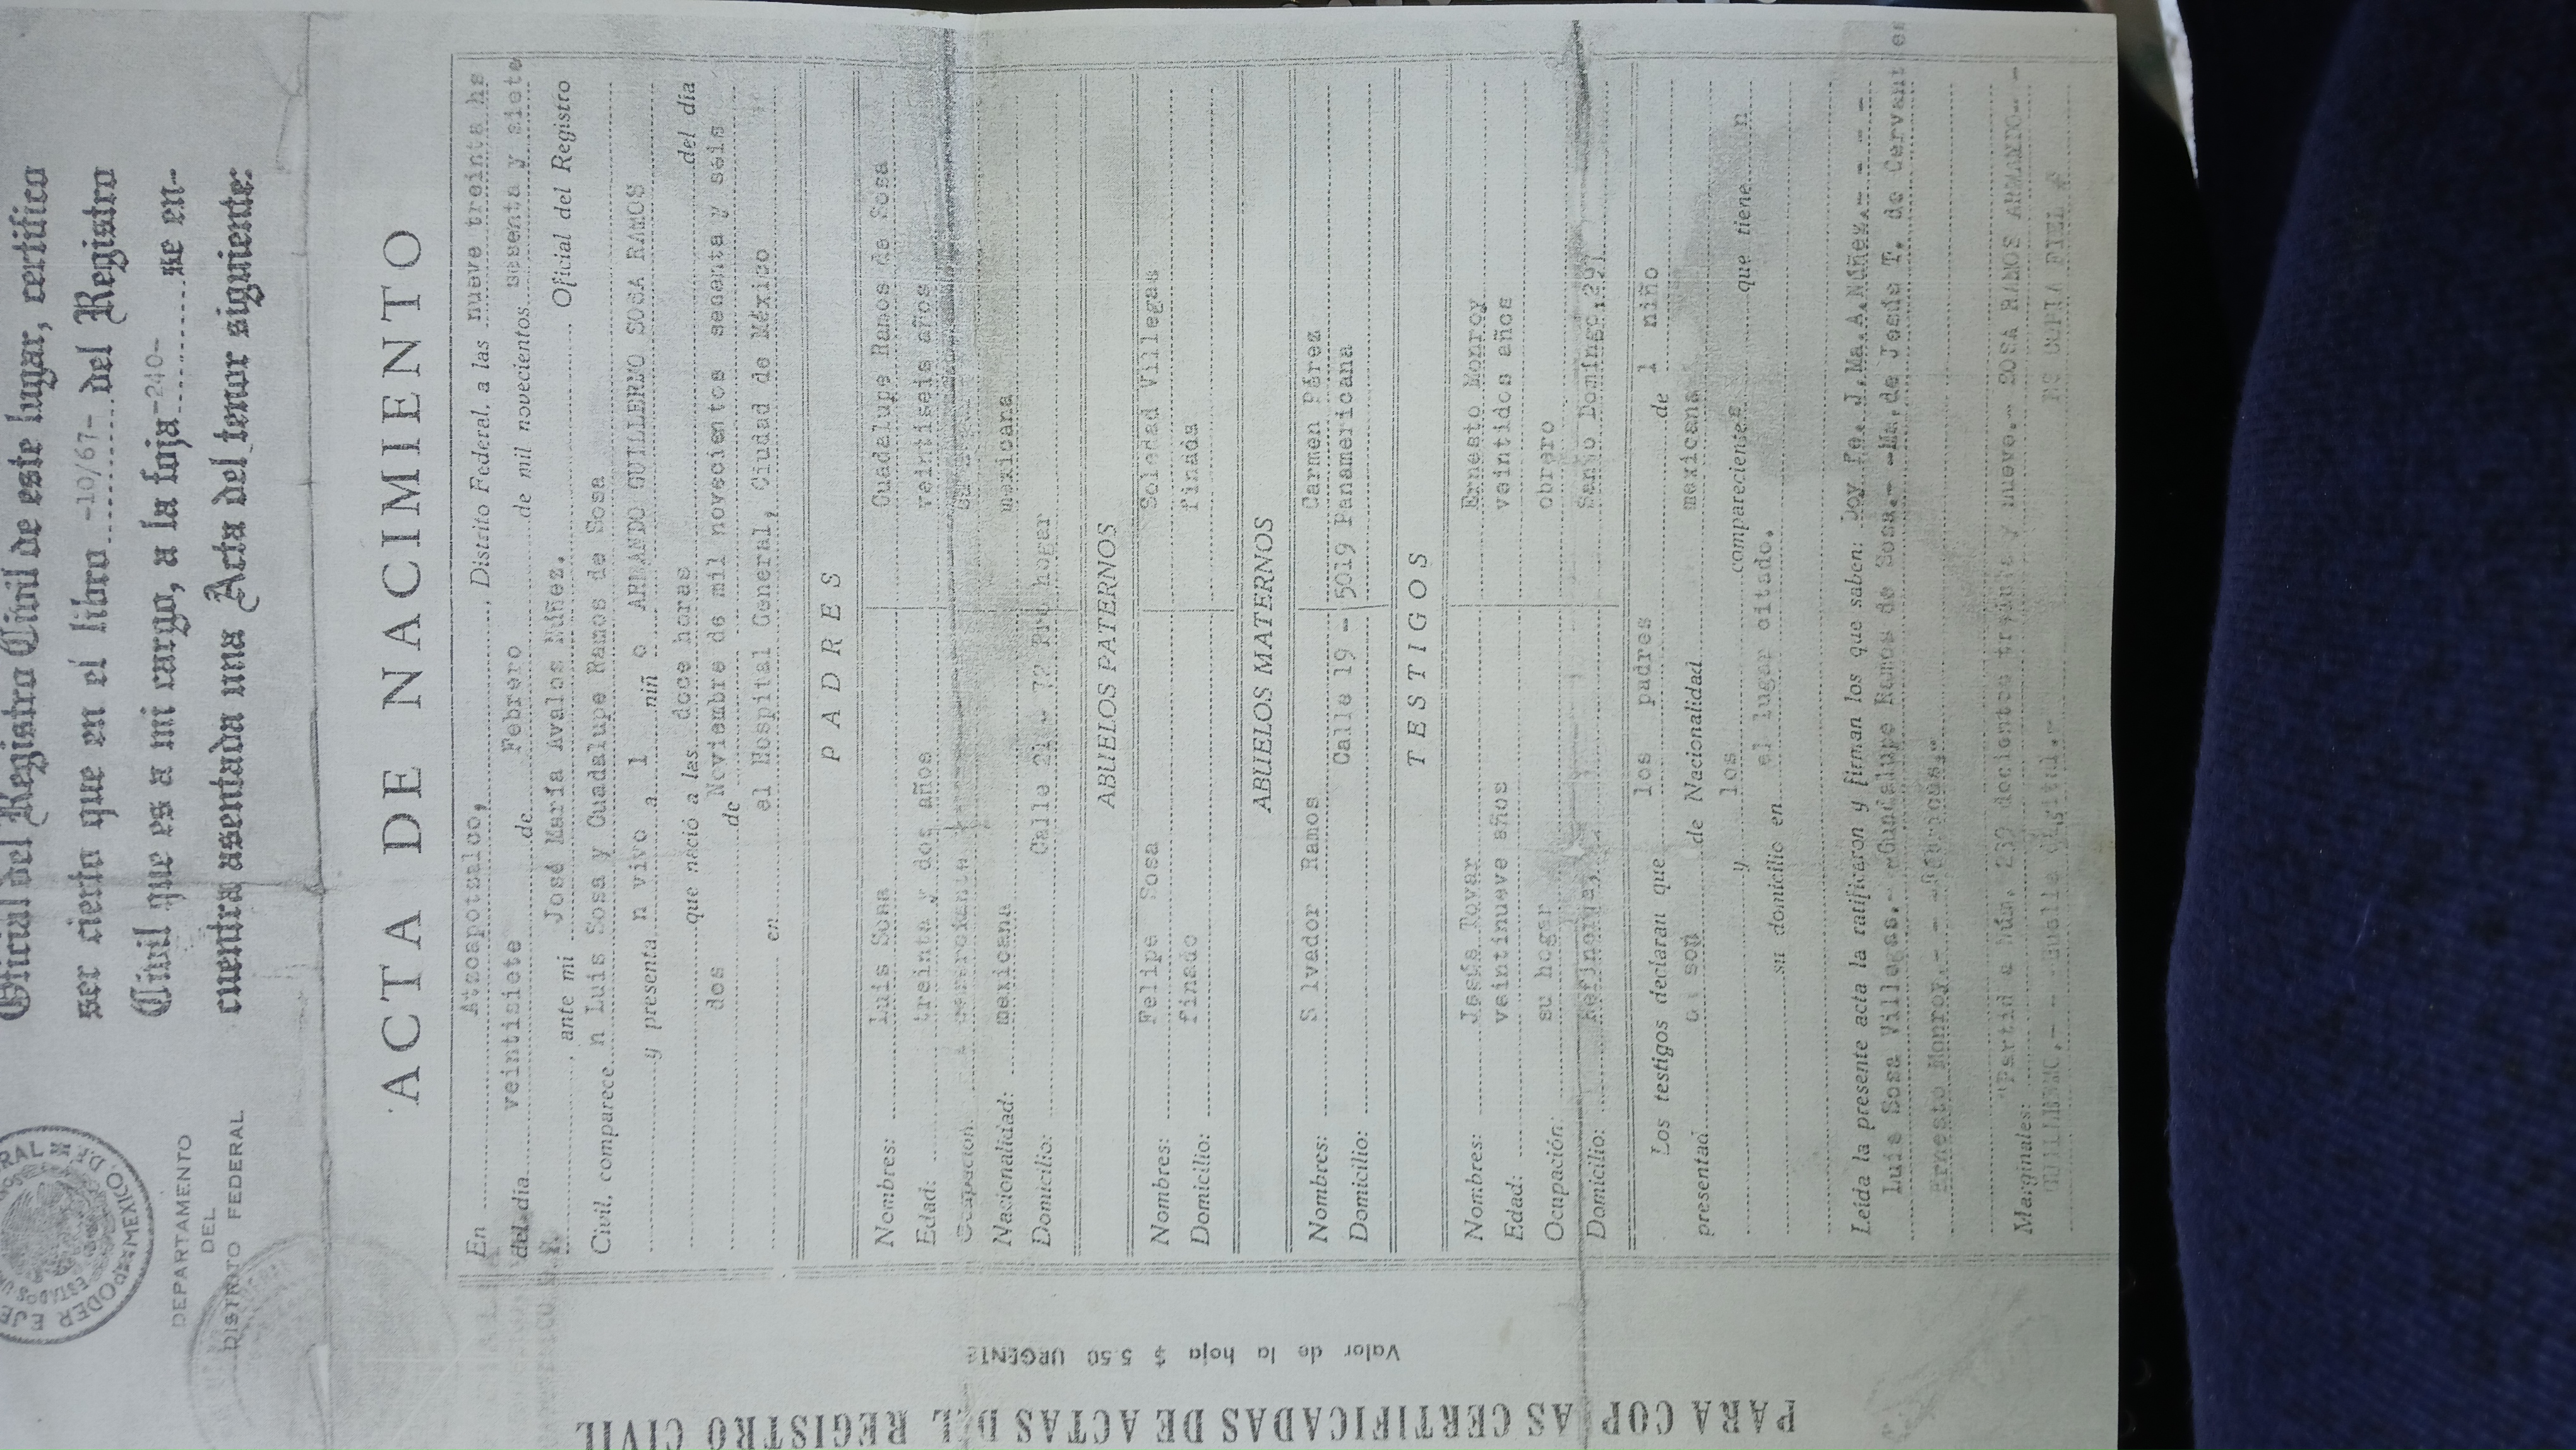 Oficial del Registro Civil de este lugar, certifico
ser cierto que en el libro -10/67- del Registro
Civil que es a mi cargo, a la foja -240- se en-
cuentra asentada una Acta del tenor siguiente:
PODER EJE
MEXICO
DEPARTAMENTO
DEL
DISTRITO FEDERAL
ACTA DE NACIMIENTO
En Atzcapotzalco, , Distrito Federal, a las nueve treinta hs
del día veintisiete de Febrero de mil novecientos sesenta y siete
, ante mi José María Avalos Núñez. Oficial del Registro
Civil, comparece n Luis Sosa y Guadalupe Ramos de Sosa
y presenta n vivo a l niñ o ARMANDO GUILLERMO SOSA RAMOS
que nació a las doce horas del día
dos de Noviembre de mil novecientos sesenta y seis
en el Hospital General, Ciudad de México
PADRES
Nombres: Luis Sosa Guadalupe Ramos de Sosa
Edad: treinta y dos años veintiseis años
Ocupación
Nacionalidad: mexicana mexicana
Domicilio: Calle 21 72 Pro hogar
ABUELOS PATERNOS
Nombres: Felipe Sosa Soledad Villegas
Domicilio: finado finada
ABUELOS MATERNOS
Nombres: S lvador Ramos Carmen Pérez
Domicilio: Calle 19 - 5019 Panamericana
TESTIGOS
Nombres: Jesús Tovar Ernesto Monroy
Edad: veintinueve años veintidos años
Ocupación: su hogar obrero
Domicilio: Refinería, Santo Domingo
Los testigos declaran que los padres de l niño
presentad o son de Nacionalidad mexicana
y los comparecientes que tiene n
su domicilio en el lugar citado.
Leída la presente acta la ratificaron y firman los que saben: Doy Fe. J.Ma.A.Núñez.- - - -
Luis Sosa Villegas.- Guadalupe Ramos de Sosa.- -Ma.de Jesús T. de Cervantes
Ernesto Monroy.- -
Marginales: "Partida Núm. 239 docientos treinta y nueve.- SOSA RAMOS ARMANDO.- -
GUILLERMO.- - -Huella digital.- ES COPIA FIEL
Valor de la hoja $ 5.50 URGENTE
PARA COPIAS CERTIFICADAS DE ACTAS DEL REGISTRO CIVIL